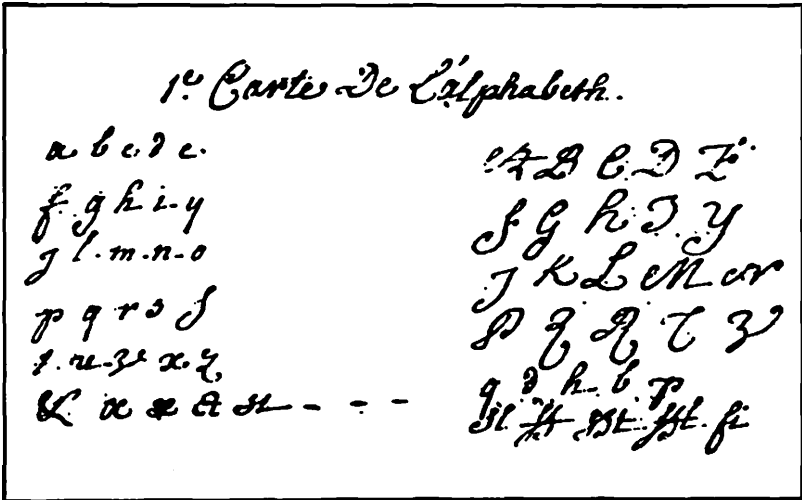 1e. Carte De L'alphabeth.
a b c d e.
f g h i y
j l. m. n. o
p q r s ſ
t. u v x z
&
A B C D E
F G H I Y
J K L M N
P Q R T V
q d h b p
fi